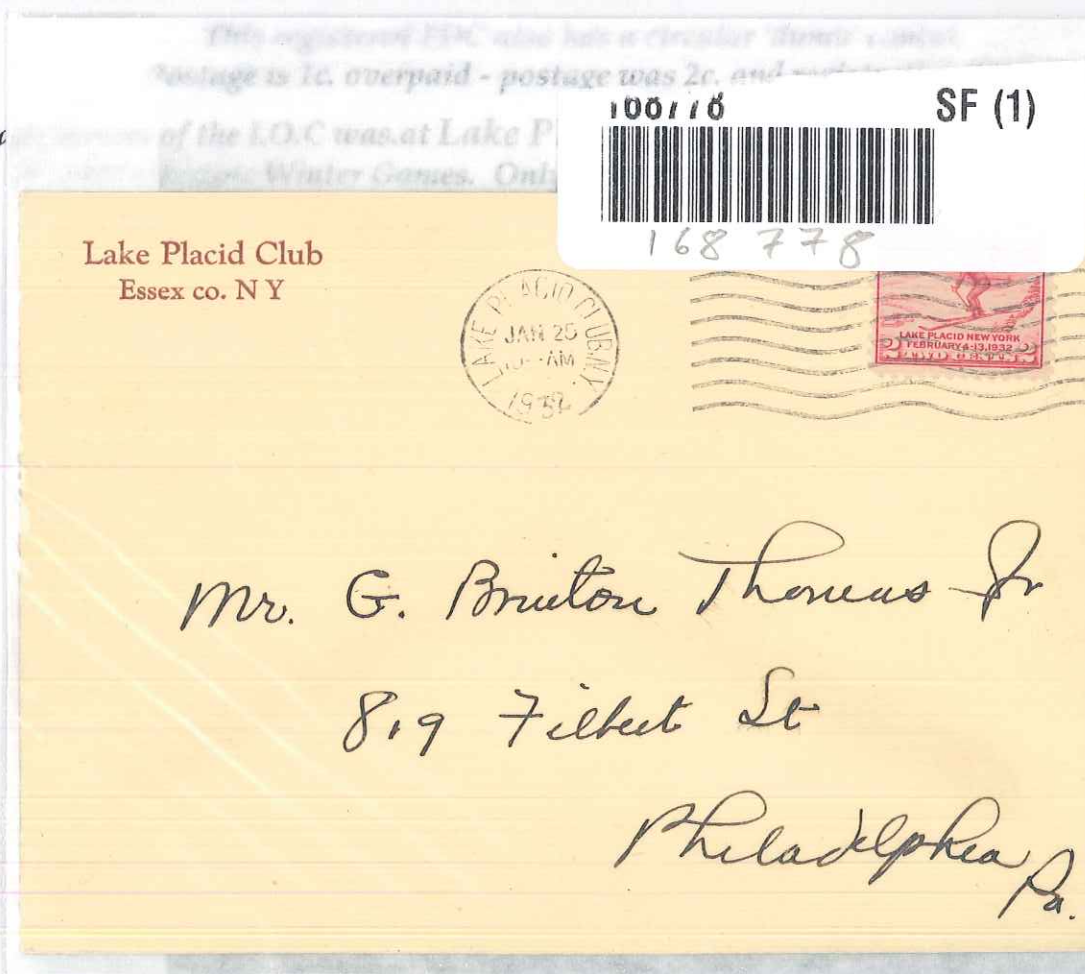 This registered FDC also has a circular
Postage is 1c. overpaid - postage was 2c. and
of the I.O.C was at Lake Pl
Winter Games. Only
SF (1)
168 778
Lake Placid Club
Essex co. N Y
LAKE PLACID CLUB N.Y.
JAN 25
AM
1932
LAKE PLACID NEW YORK
FEBRUARY 4-13, 1932
2 TWO CENTS 2
Mr. G. Bruton Thomas Jr
819 Filbert St
Philadelphia
Pa.